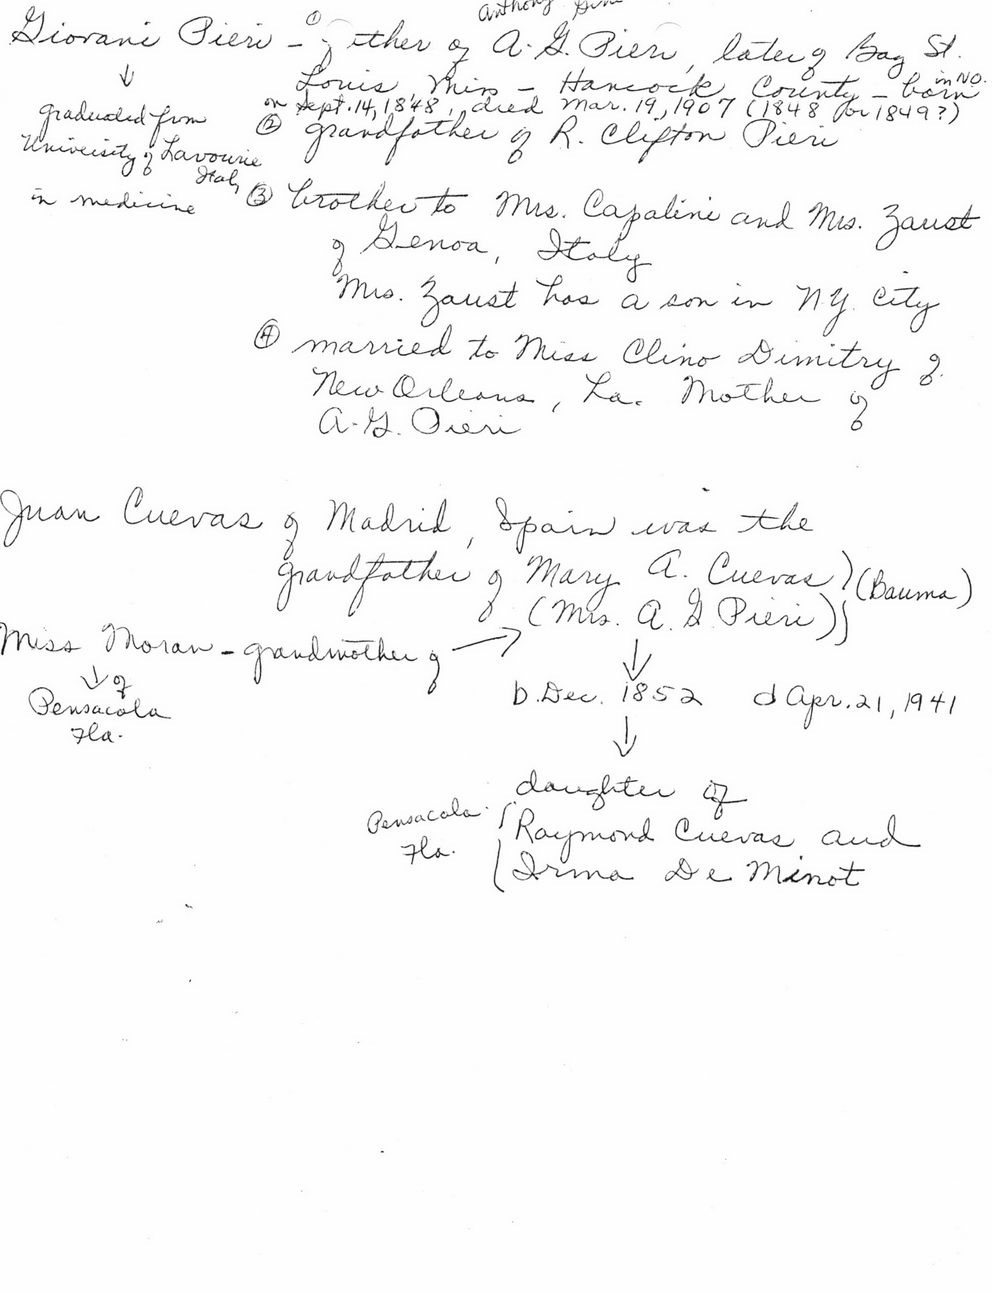 Anthony
Giovani Pieri - ① father of A.G. Pieri, later of Bay St.
Louis Miss - Hancock County - born in N.O.
on Sept. 14, 1848, died Mar. 19, 1907 (1848 or 1849?)
↓
graduated from
University of Lavourie
Italy
in medicine
② grandfather of R. Clifton Pieri
③ brother to Mrs. Capalini and Mrs. Zaust
of Genoa, Italy
Mrs. Zaust has a son in N.Y. City
④ married to Miss Clino Dimitry of
New Orleans, La. Mother of
A.G. Pieri
Juan Cuevas of Madrid, Spain was the
grandfather of Mary A. Cuevas
(Mrs. A. G Pieri)
(Bauma)
Miss Moran - grandmother of →
↓ of
Pensacola
Fla.
↓
b. Dec. 1852 d Apr. 21, 1941
↓
daughter of
Raymond Cuevas and
Irma De Minot
Pensacola
Fla.